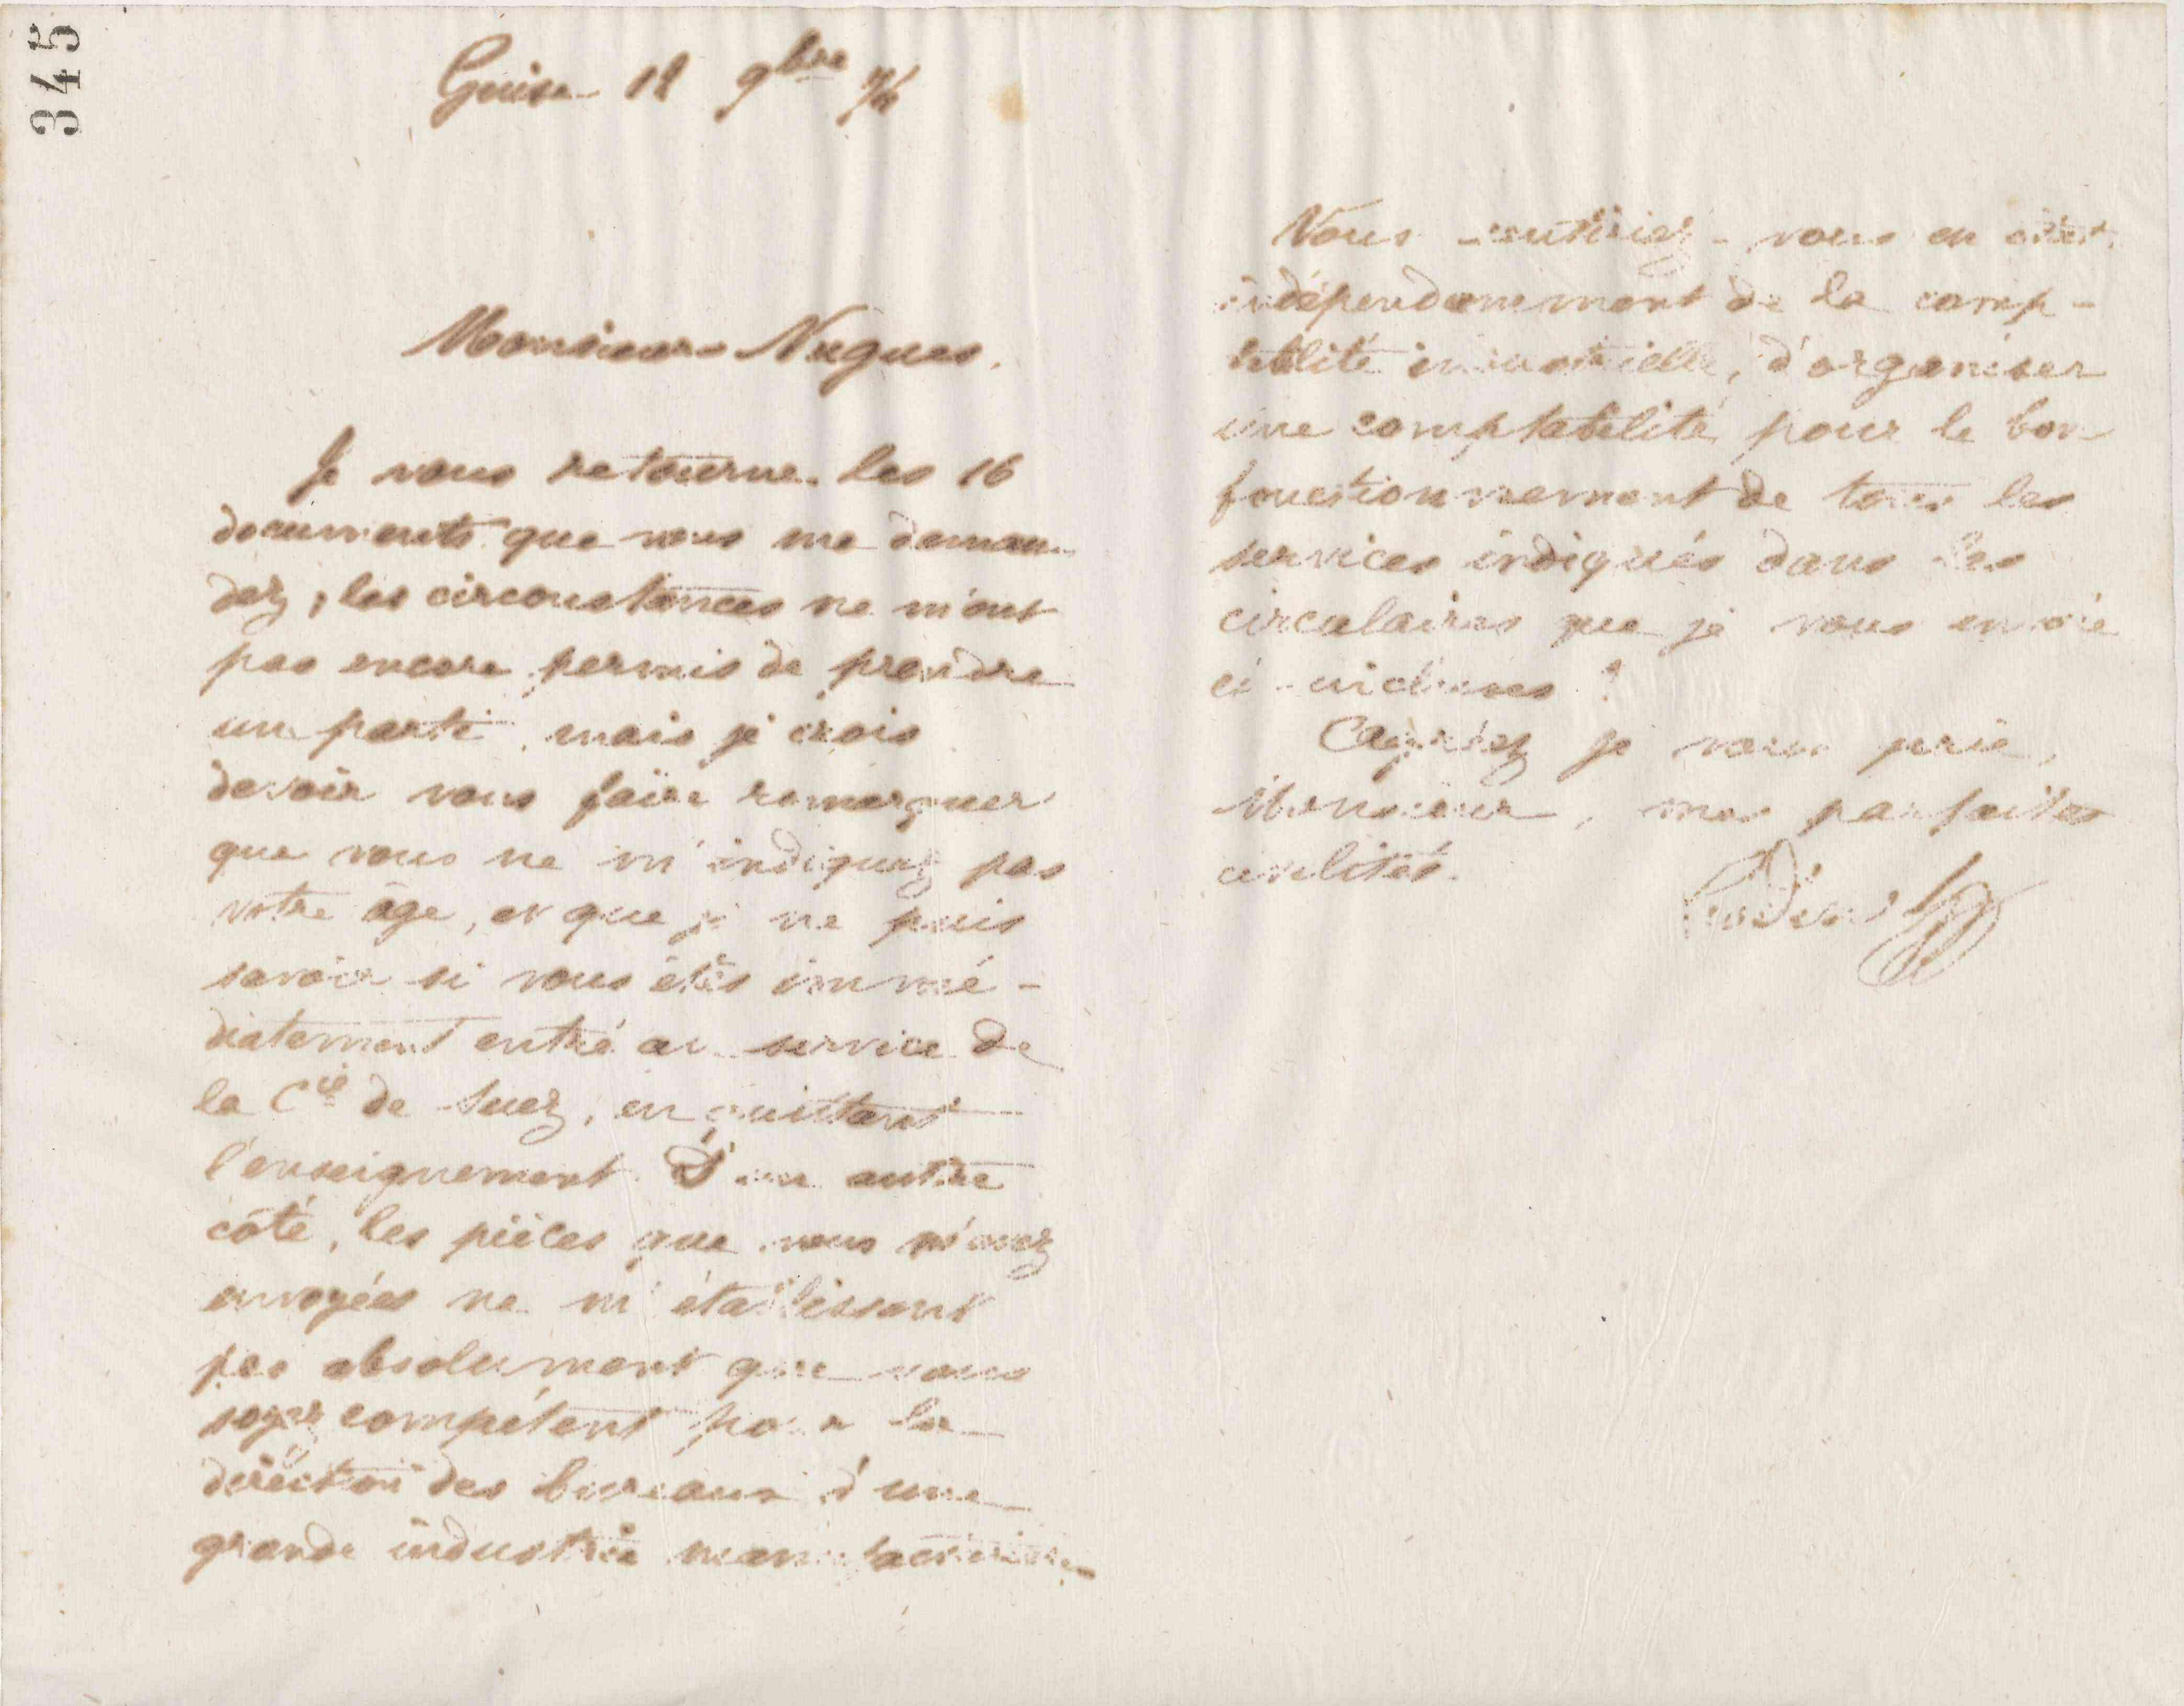 345
Guise 12 9bre
Monsieur Nugues.
Je vous retourne les 16
documents que vous me deman-
dez, les circonstances ne m'ont
pas encore permis de prendre
un parti, mais je crois
devoir vous faire remarquer
que vous ne m'indiquez pas
votre âge, et que je ne puis
savoir si vous êtes immé-
diatement entré au service de
la Cie de Suez, en quittant
l'enseignement. D'un autre
côté, les pièces que vous m'avez
envoyées ne m'établissent
pas absolument que vous
soyez compétent pour la
direction des bureaux d'une
grande industrie manufacturière
Vous sentiriez-vous en état,
indépendamment de la comp-
tabilité industrielle, d'organiser
une comptabilité pour le bon
fonctionnement de tous les
services indiqués dans les
circulaires que je vous envoie
ci-incluses ?
Agréez je vous prie,
Monsieur, mes parfaites
civilités.
Godin